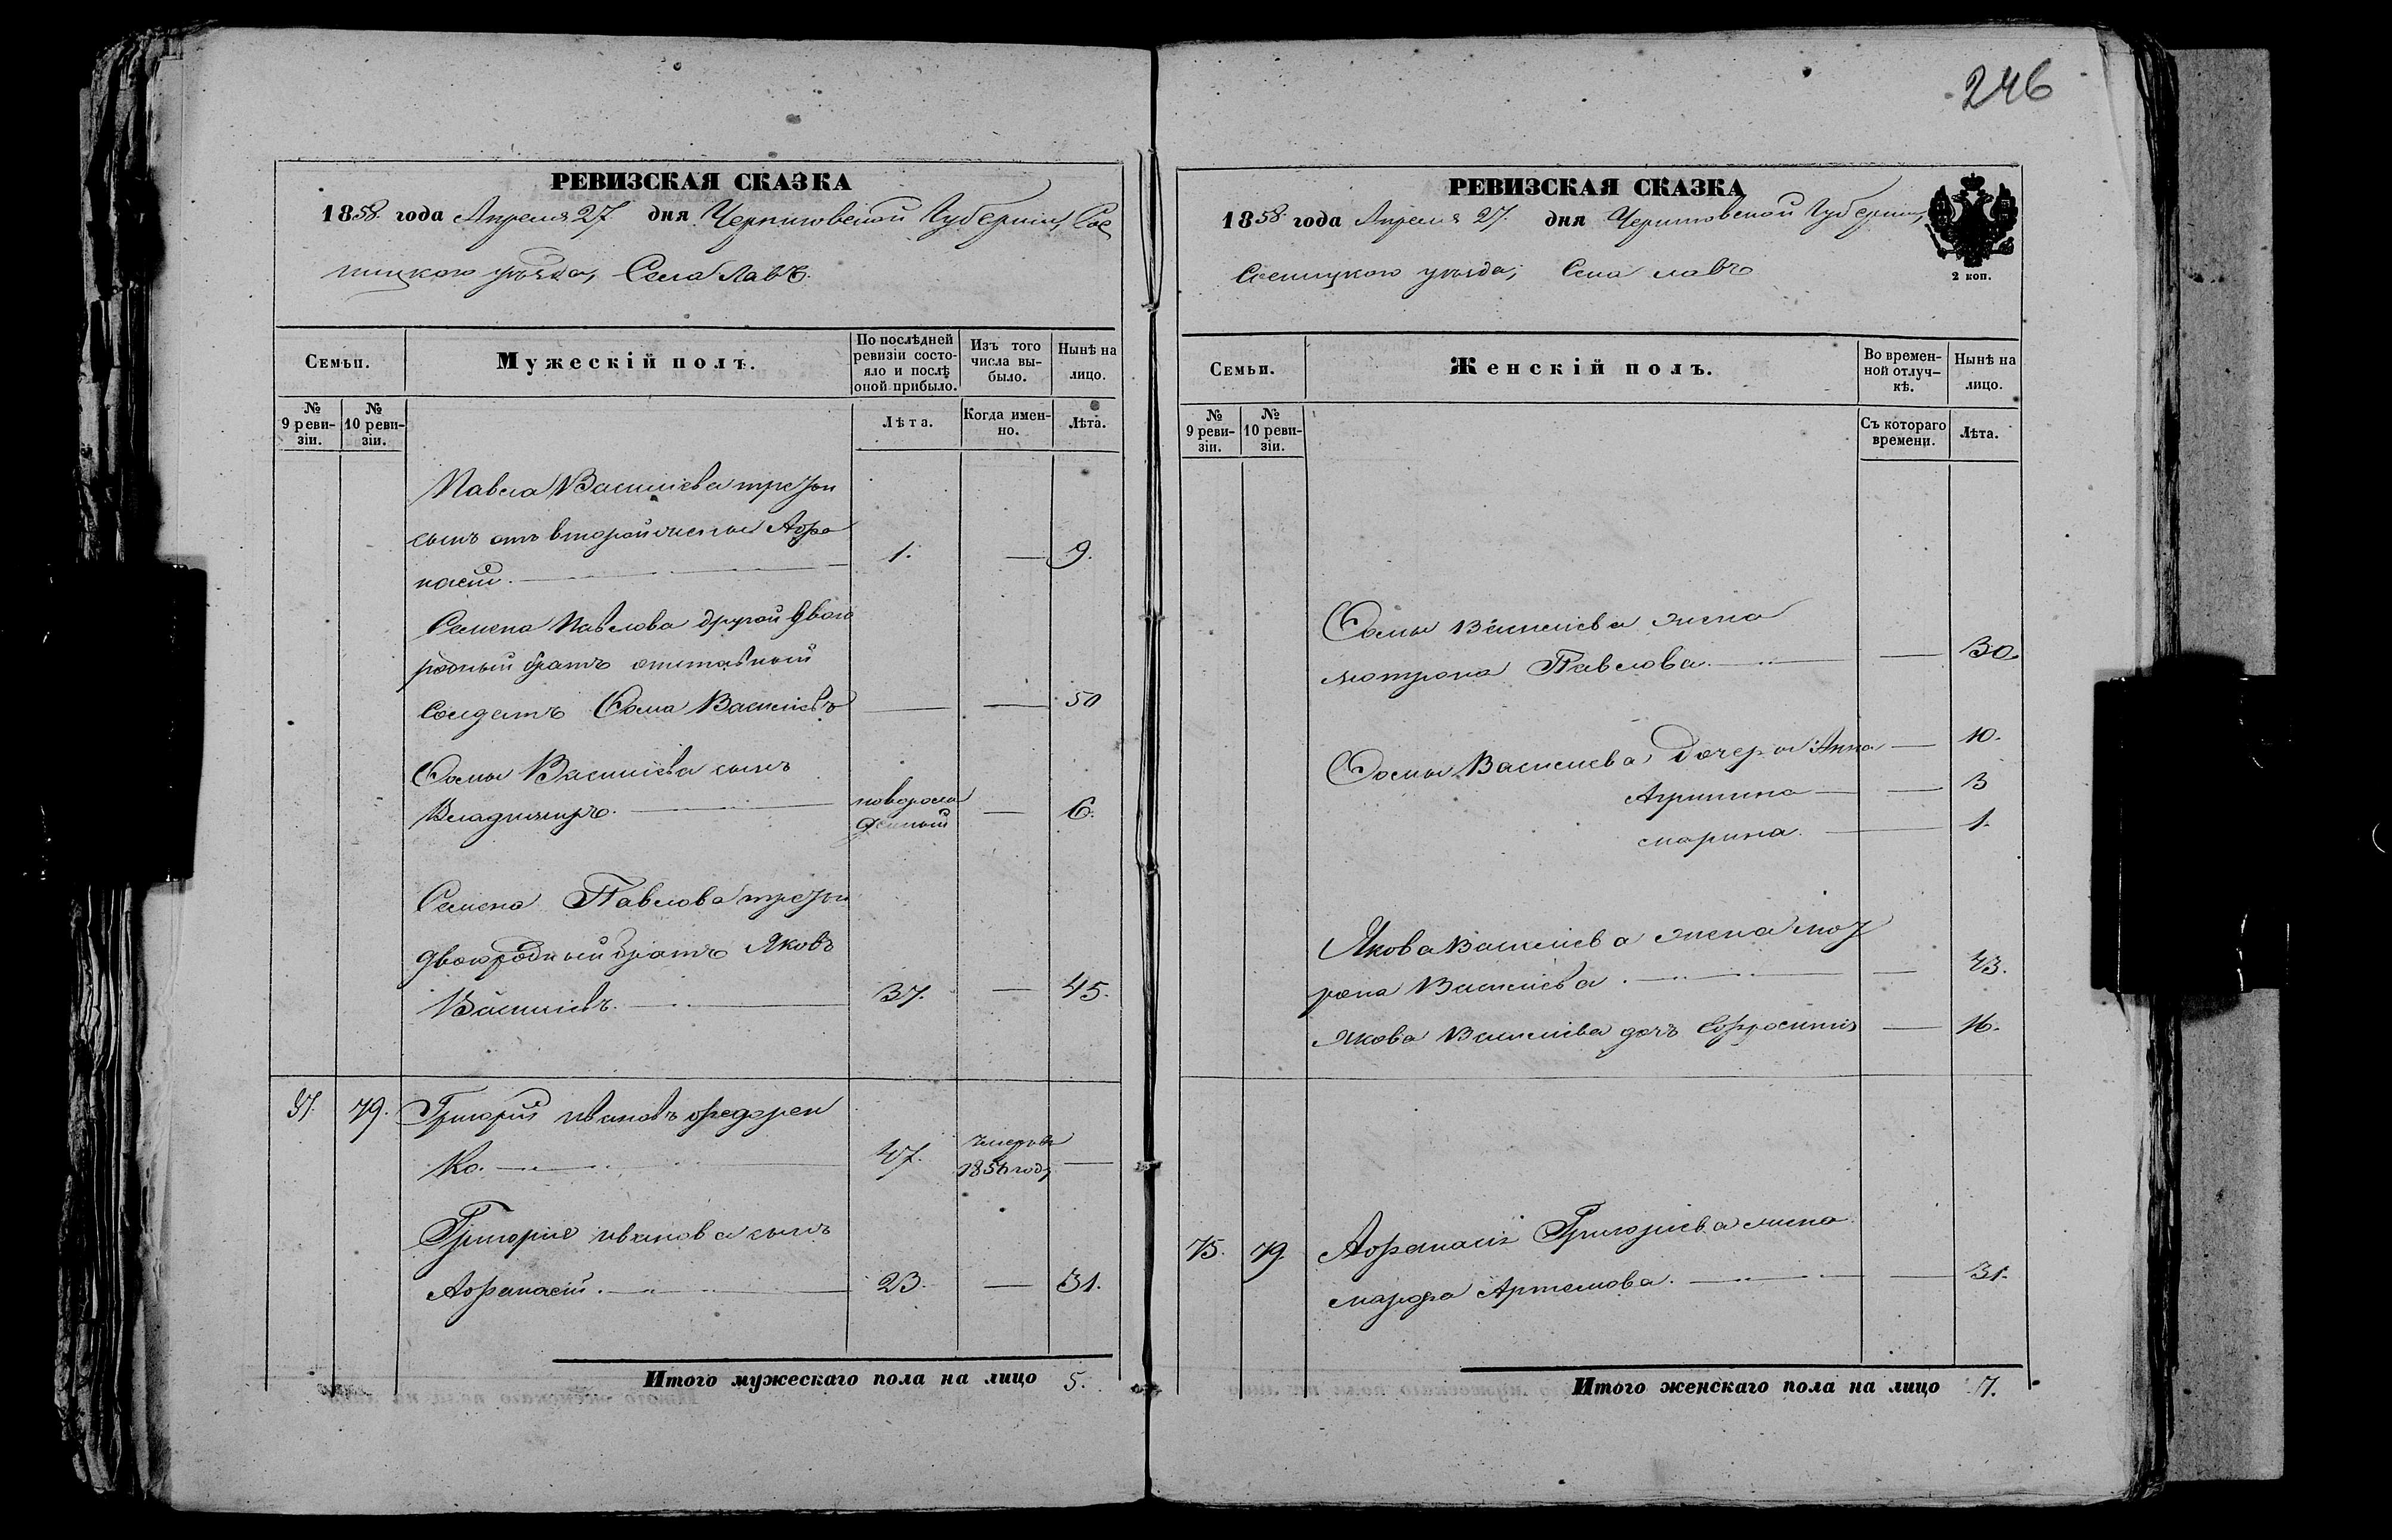 246
РЕВИЗСКАЯ СКАЗКА
1858 года Апреля 27 дня Черниговской Губернии, Сос
ницкого уѣзда, Села Лавъ.
Семьи.
Мужескій полъ.
По послѣдней ревизіи состояло и послѣ оной прибыло.
Изъ того числа выбыло.
Нынѣ на лицо.
№ 9 ревизіи.
№ 10 ревизіи.
Лѣта.
Когда именно.
Лѣта.
Павла Василіева третій
сынъ отъ второй жены Афа
насій. 1. — 9.
Семена Павлова другой двою
родный братъ отставной
Солдатъ Фома Василіевъ — — 50
Фомы Василіева сынъ
Владимиръ. новорож
денный — 6.
Семена Павлова третій
двоюродный братъ Яковъ
Василіевъ. 37. — 45.
79. Григорій Ивановъ Федорен
ко. 47. умеръ въ
году —
Григорія Иванова сынъ
Афанасій. 23. — 31.
Итого мужескаго пола на лицо 5.
РЕВИЗСКАЯ СКАЗКА
1858 года Апреля 27. дня Черниговской Губерніи,
Сосницкого уѣзда, Села Лавъ
2 коп.
Семьи.
Женскій полъ.
Во временной отлучкѣ.
Нынѣ на лицо.
№ 9 ревизіи.
№ 10 ревизіи.
Съ котораго времени.
Лѣта.
Фомы Василіева жена
Мотрона Павлова. — 30
Фомы Василіева дочери Анна — 10.
Агрипина — 3
Марина. — 1.
Якова Василіева жена Мот
рона Василіева. — 43.
Якова Василіева дочь Ефросинія — 16.
75. 79. Афанасія Григоріева жена
Марфа Артемова. — 31.
Итого женскаго пола на лицо 7.